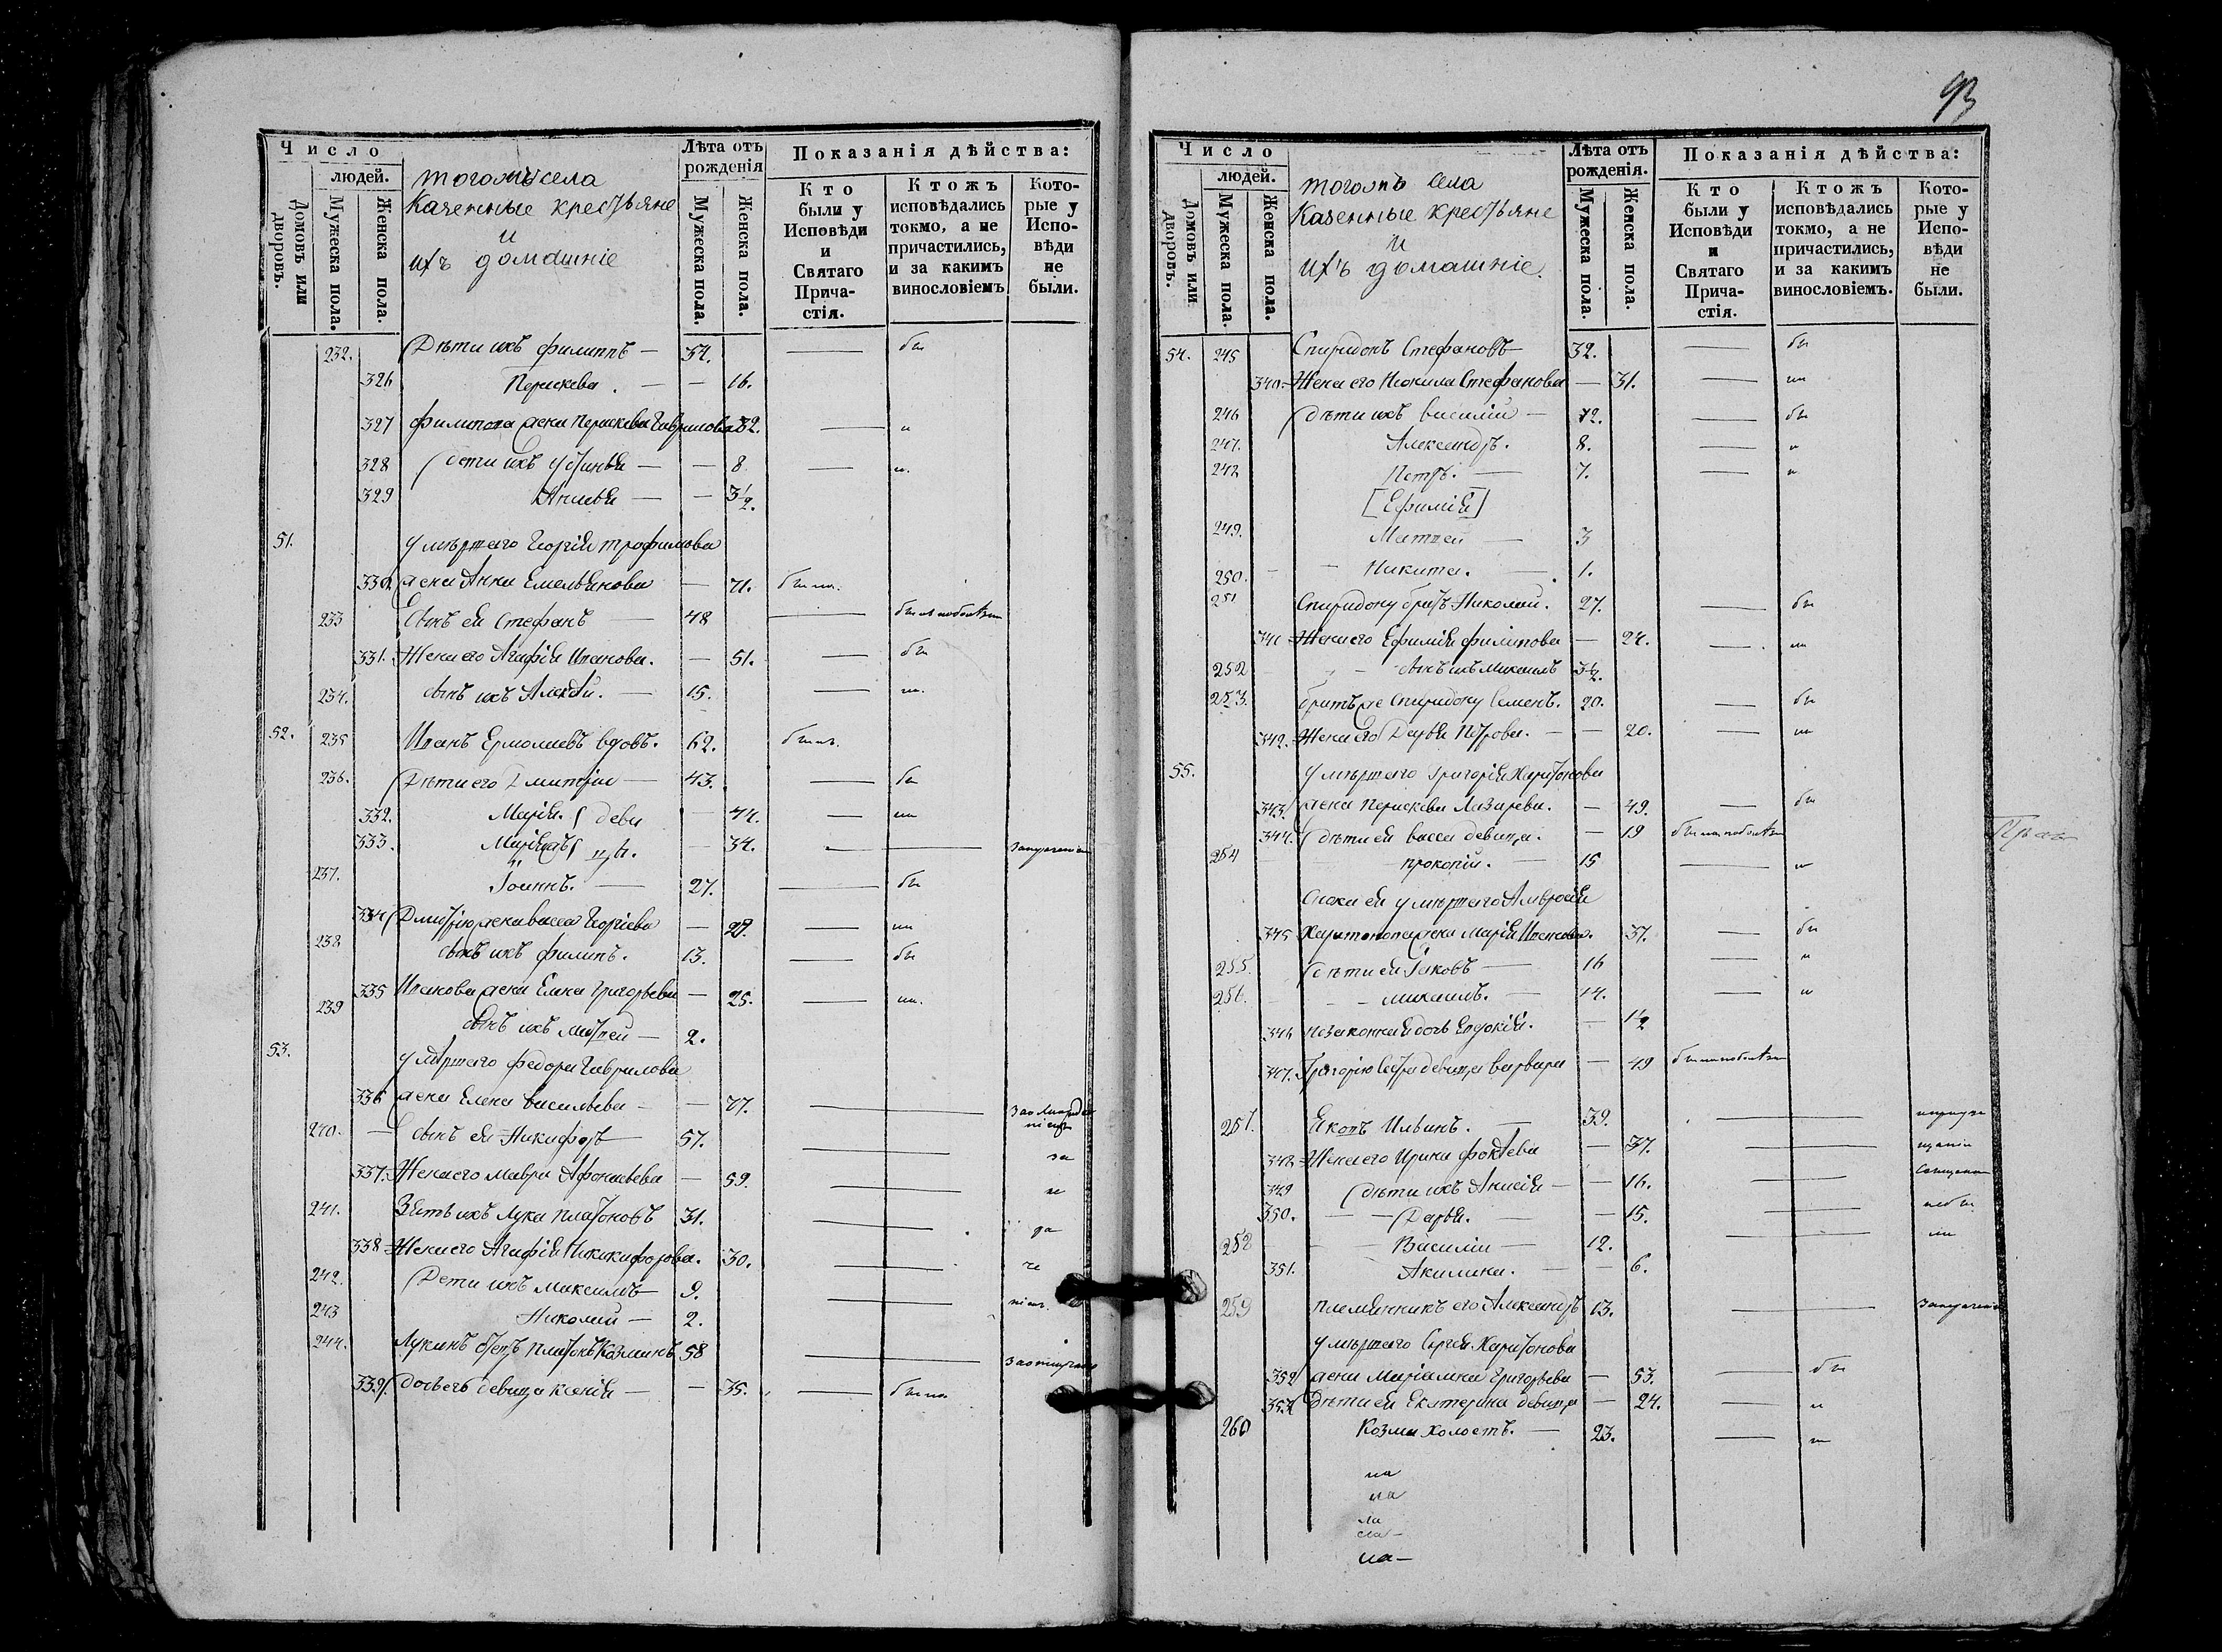 93
Число
Лѣта отъ рожденія
Показанія дѣйства:
Домовъ или дворовъ.
людей.
Мужеска пола.
Женска пола.
тогожъ села
Казенные крестьяне
и
ихъ домашніе
Мужеска пола.
Женска пола.
Кто были у Исповѣди и Святаго Прича-стія.
Ктожъ исповѣдались токмо, а не причастились, и за какимъ винословіемъ
Кото-рые у Испо-вѣди не были.
232. Дѣти ихъ Филиппъ — 34. — бы
326 Параскева. — — 16.
327 Филиппа жена Параскева Гаврилова 32. — и
328 дети ихъ Устинья — — 8 — и.
329 — — 3½.
51. умершаго Георгія Трофимова
330. жена Анна Емельянова — 71. была.
233 Сынъ ея Стефанъ — 48 —
331. Жена его Агафія Иванова. — 51. — бы
234. сынъ ихъ Алексѣй. — 15. —
52. 235 Иванъ Ермолаевъ вдовъ. 62. былъ.
236. Дѣти его Дмитрій — 43. — бы
332. Марія. деви — 44. —
333. Марія цы. — 34. —
237. Іоаннъ. — 27. — бы
334 Дмитрію жена Васса Георгіева — —
238 сынъ ихъ Филипъ. 13. — бы
335 Иванова жена Елена Григорьева — 25. —
239 сынъ ихъ Матвей — 2.
53. умершаго Федора Гаврилова
336 жена Елена Васильева — — 77. —
240. — сынъ ея Никифоръ 57. —
337. Жена его Мавра Афонасьева — 59. —
241. Зять ихъ Лука Платоновъ 31. —
338 Жена его Агафія Никифорова. 30. —
242. Дети ихъ Максимъ 9. —
243 Николай — 2. —
244. Лукинъ отецъ Платонъ Козминъ 58 —
339. дочь его девица Ксенія — — 35. — была
Число
Лѣта отъ рожденія.
Показанія дѣйства:
Домовъ или дворовъ.
людей.
Мужеска пола.
Женска пола.
тогожъ села
Казенные крестьяне
и
ихъ домашніе.
Мужеска пола.
Женска пола.
Кто были у Исповѣди и Святаго Прича-стія.
Ктожъ исповѣдались токмо, а не причастились, и за какимъ винословіемъ.
Кото-рые у Испо-вѣди не были.
54. 245 Спиридонъ Стефановъ 32. — бы
340. Жена его Стефанова — 31. —
246 дѣти ихъ Василій — 12. — бы
247. Александръ. 8. — и
248 Петръ. — 7. — и
[Ефимія]
249. Матвей — 3
250. — — Никита. — 1.
251 Спиридону братъ Николай. 27. — бы
341 Жена его Ефимія Филипова — 24. —
252 сынъ ихъ Михаилъ 3½.
253. братъ же Спиридону Семенъ. 20. — бы
342. Жена его Дарья Петрова. — — 20. —
55. умершаго Григорія Харитонова
343. жена Параскева Лазарева. — 49. — бы
344. дѣти ея Васса девица. — 19
254 Прокопій. — 15 — и
Сноха ея умершаго Амвросія
345 Харитонова жена Марія Иванова. 37. — бы
255. дѣти ея Іаковъ — 16 — и
256. — — Михаилъ. — 14. — и
346 незаконная дочь Евдокія. — 1½
347. Григорію сестра девица Варвара — 49
257. Яковъ Ильинъ. — 39. —
348 Жена его Ирина — 37. —
349 дѣти ихъ Анисія — — 16. —
350. — — Дарья. — — 15. —
258 — Василій — 12. —
351. Акилина. — — 6.
259 племянникъ его Александръ 13. —
умершаго Сергія Харитонова
352 жена Маріамна Григорьева — 53. — бы
353. дѣти ея Екатерина девица — 24. — и
260 Козма холостъ. — 23. —